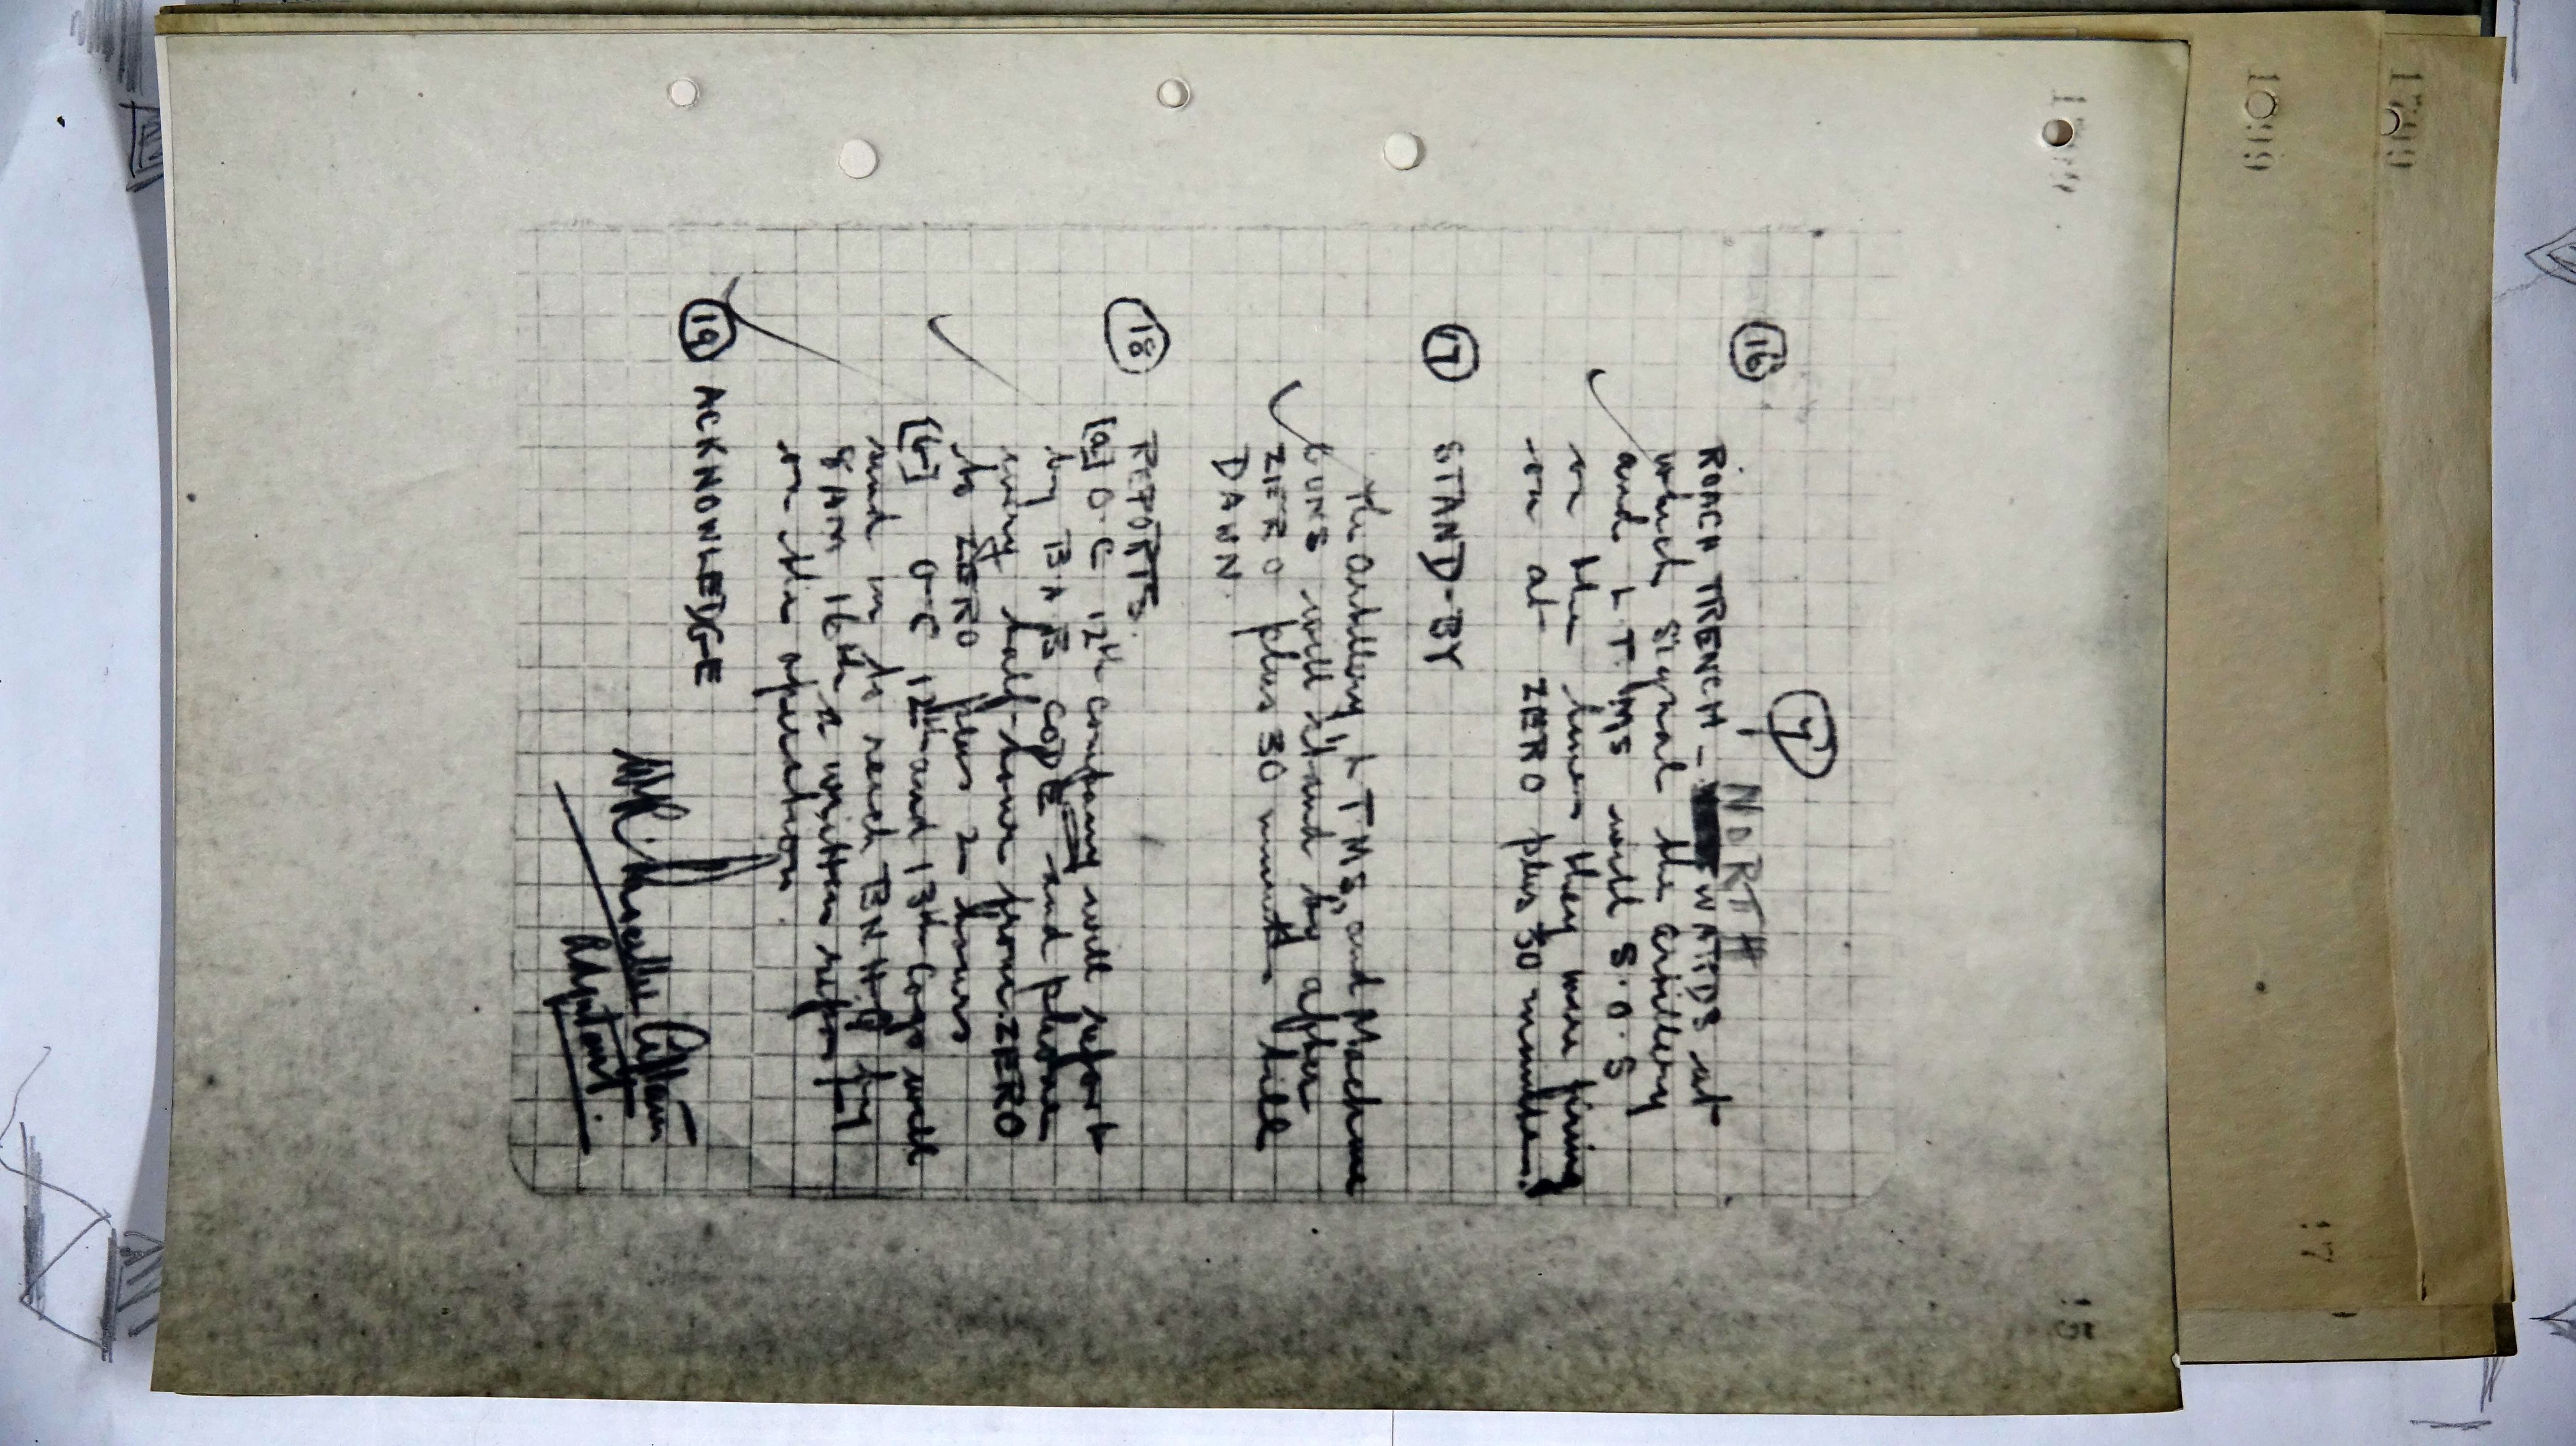 7
NORTH
16
ROACH TRENCH - WARDS at
which signal the artillery
and L T Ms will S.O.S
on the lines they were firing
on at ZERO plus 30 minutes.
17 STAND-BY
The Artillery, L TMS, and Machine
GUNS will stand by after
ZERO plus 30 minutes till
DAWN.
18
REPORTS.
[a] O.C 12th company will report
by BAB CODE and phone
every half-hour from ZERO
to ZERO plus 2 hours.
[b] O-C 12th and 13th Coys will
send in to reach BN HQ by
8 AM 16th a written report
on the operation.
19 ACKNOWLEDGE
Captain
Adjutant.
1099
1799
17